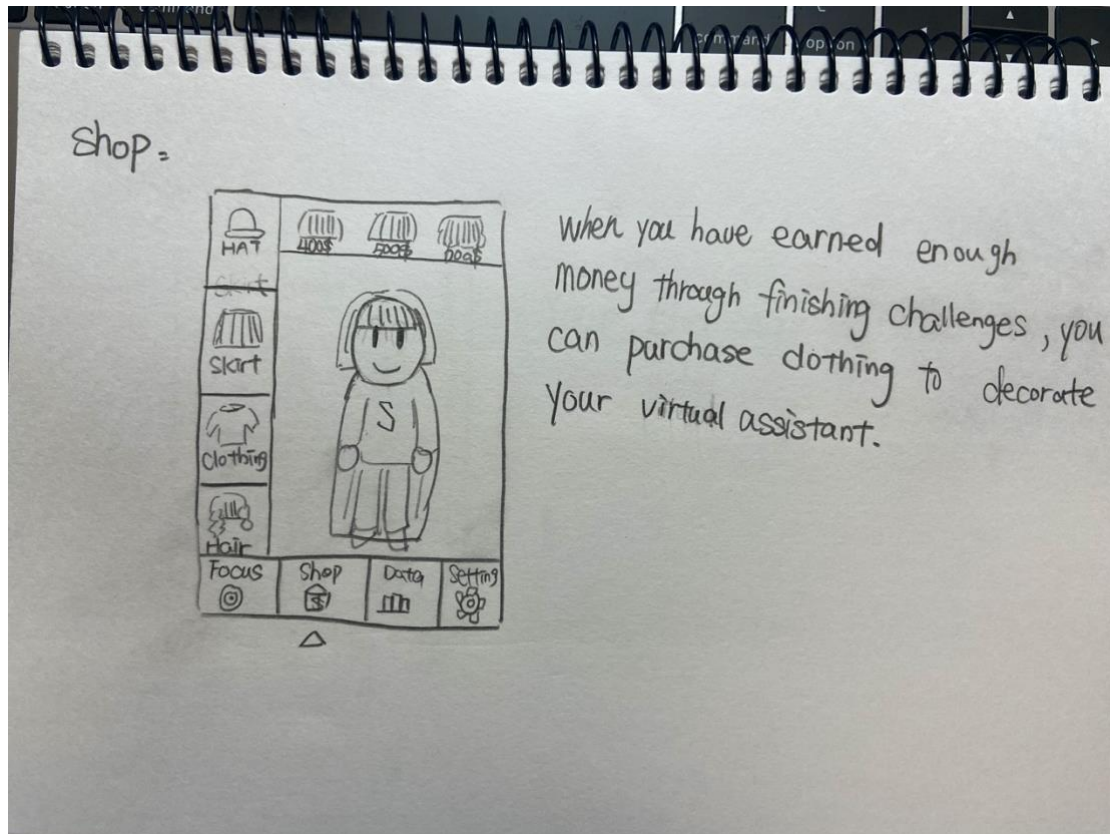 command
command
option
Shop.
HAT
400$
500$
600$
Skirt
Skirt
Clothing
Hair
Focus
Shop
$
Data
Setting
S
When you have earned enough
money through finishing challenges, you
can purchase clothing to decorate
your virtual assistant.